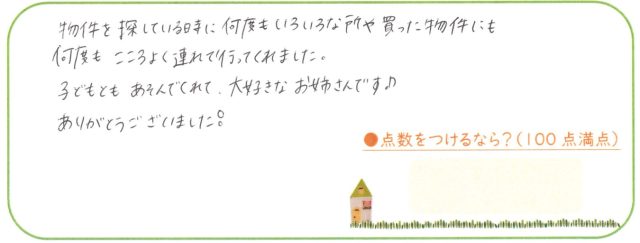 物件を探している時に何度もいろいろな所や買った物件にも
何度もこころよく連れて行ってくれました。
子どもともあそんでくれて、大好きなお姉さんです♪
ありがとうございました!
●点数をつけるなら？(100点満点)